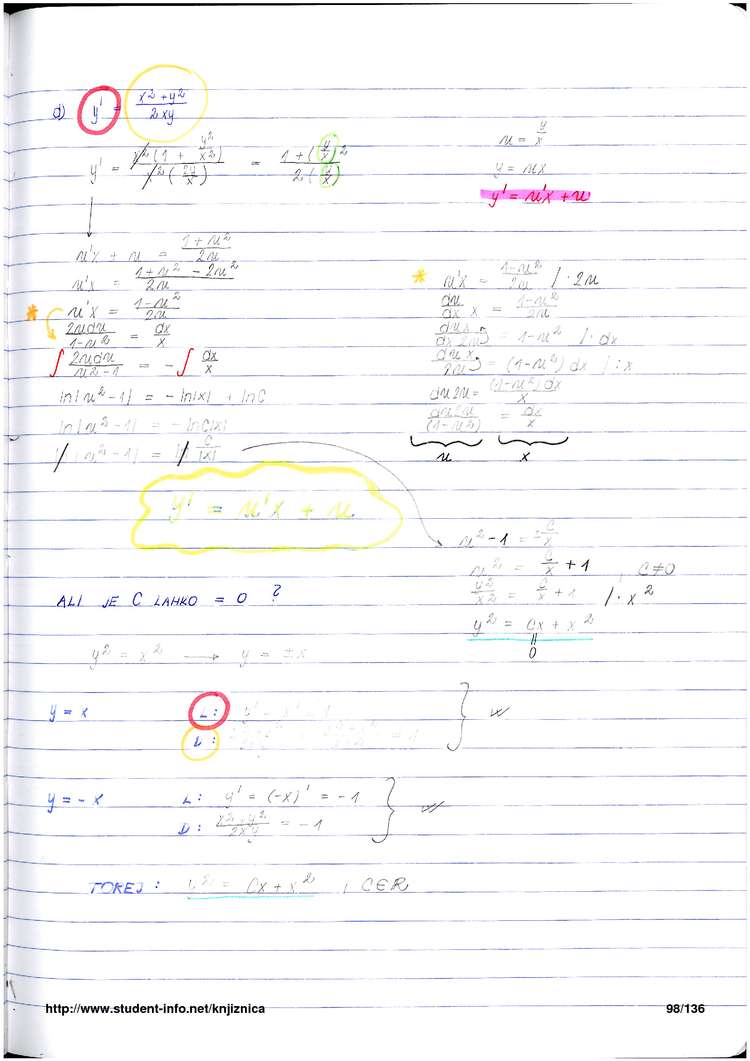 d) y' = (x² + y²)/(2xy)
y' = x²(1 + y²/x²)/(x²(2y/x)) = (1 + (y/x)²)/(2(y/x))
u = y/x
y = ux
y' = u'x + u
u'x + u = (1 + u²)/(2u)
u'x = (1 + u² - 2u²)/(2u)
* u'x = (1 - u²)/(2u)
2u du/(1 - u²) = dx/x
∫ 2u du/(u² - 1) = - ∫ dx/x
ln|u² - 1| = - ln|x| + ln C
ln|u² - 1| = - ln C|x|
ln|u² - 1| = ln C/|x|
* u'x = (1 - u²)/(2u) /· 2u
du/dx x = (1 - u²)/(2u)
= 1 - u² /· dx
= (1 - u²) dx /: x
du 2u = (1 - u²) dx/x
du 2u/(1 - u²) = dx/x
u x
y' = u'x + u
u² - 1 = ± C/x
u² = C/x + 1 , C ≠ 0
y²/x² = C/x + 1 /· x²
y² = Cx + x²
=
0
ALI JE C LAHKO = 0 ?
y² = x² → y = ± x
y = x L: y' = x' = 1
D: = 1
y = - x L: y' = (-x)' = - 1
D: (x² + y²)/(2xy) = - 1
TOREJ: y² = Cx + x² , C ∈ R
http://www.student-info.net/knjiznica 98/136